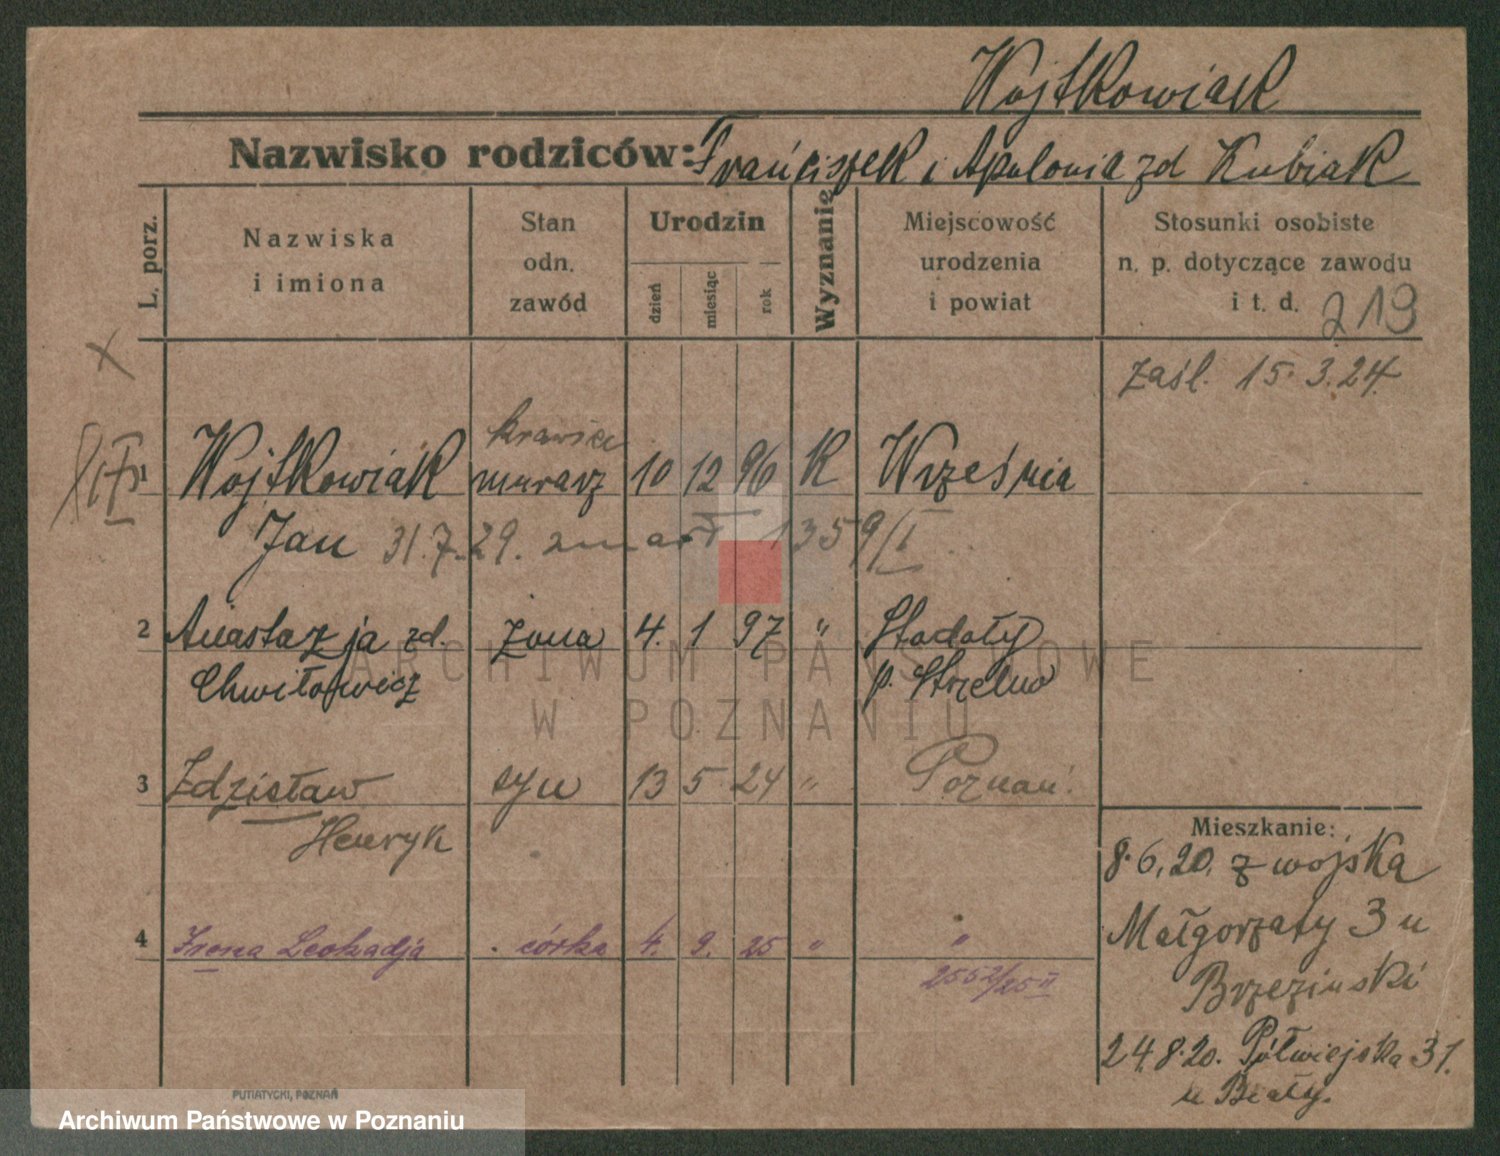 Wojtkowiak
Nazwisko rodziców: Frańciszek i Apolonia zd Kubiak
L. porz.
Nazwiska
i imiona
Stan
odn.
zawód
Urodzin
dzień
miesiąc
rok
Wyznanie
Miejscowość
urodzenia
i powiat
Stosunki osobiste
n. p. dotyczące zawodu
i t. d. 219
zaśl. 15.3.24
krawiec
1 Wojtkowiak murarz 10 12 96 K Września
Jan 31.7.29. zmarł 1359/I
2 Anastazja zd. żona 4. 1 97 " Stodoły
Chwiłowicz p. Strzelno
3 Zdzisław syn 13 5 24 " Poznań.
Henryk
4 Irena Leokadja córka 4. 9. 25 " "
2552/25 II
Mieszkanie:
8.6.20. z wojska
Małgorzaty 3 u
Brzeziński
24.8.20. Półwiejska 31.
u Biały.
PUTIATYCKI, POZNAŃ
ARCHIWUM PAŃSTWOWE
W POZNANIU
Archiwum Państwowe w Poznaniu